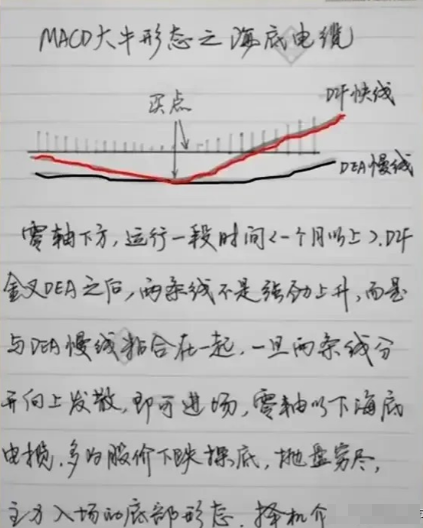 MACD大牛形态之海底电缆
买点
DIF快线
DEA慢线
零轴下方,运行一段时间<一个月以上>.DIF
金叉DEA之后,两条线不是强劲上升,而是
与DEA慢线粘合在一起,一旦两条线分
开向上发散,即可进场,零轴以下海底
电揽,多为股价下跌探底,抛盘穷尽,
主力入场的底部形态.择机介